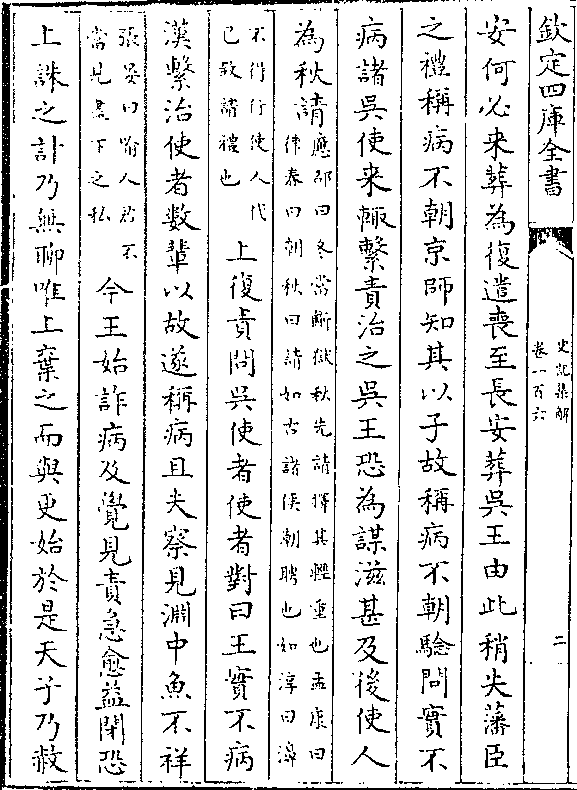 欽定四庫全書
史記集解
卷一百六
二
安何必来葬為復遣喪至長安葬吳王由此稍失藩臣
之禮稱病不朝京師知其以子故稱病不朝驗問實不
病諸吳使来輒繫責治之吳王恐為謀滋甚及後使人
為秋請
應劭曰冬當斷獄秋先請擇其輕重也孟康曰
律春曰朝秋曰請如古諸侯朝聘也如淳曰濞
不得行使人代
已致請禮也
上復責問吳使者使者對曰王實不病
漢繫治使者數輩以故遂稱病且夫察見淵中魚不祥
張晏曰喻人君不
當見盡下之私
今王始詐病及覺見責急愈益閉恐
上誅之計乃無聊唯上棄之而與更始於是天子乃赦